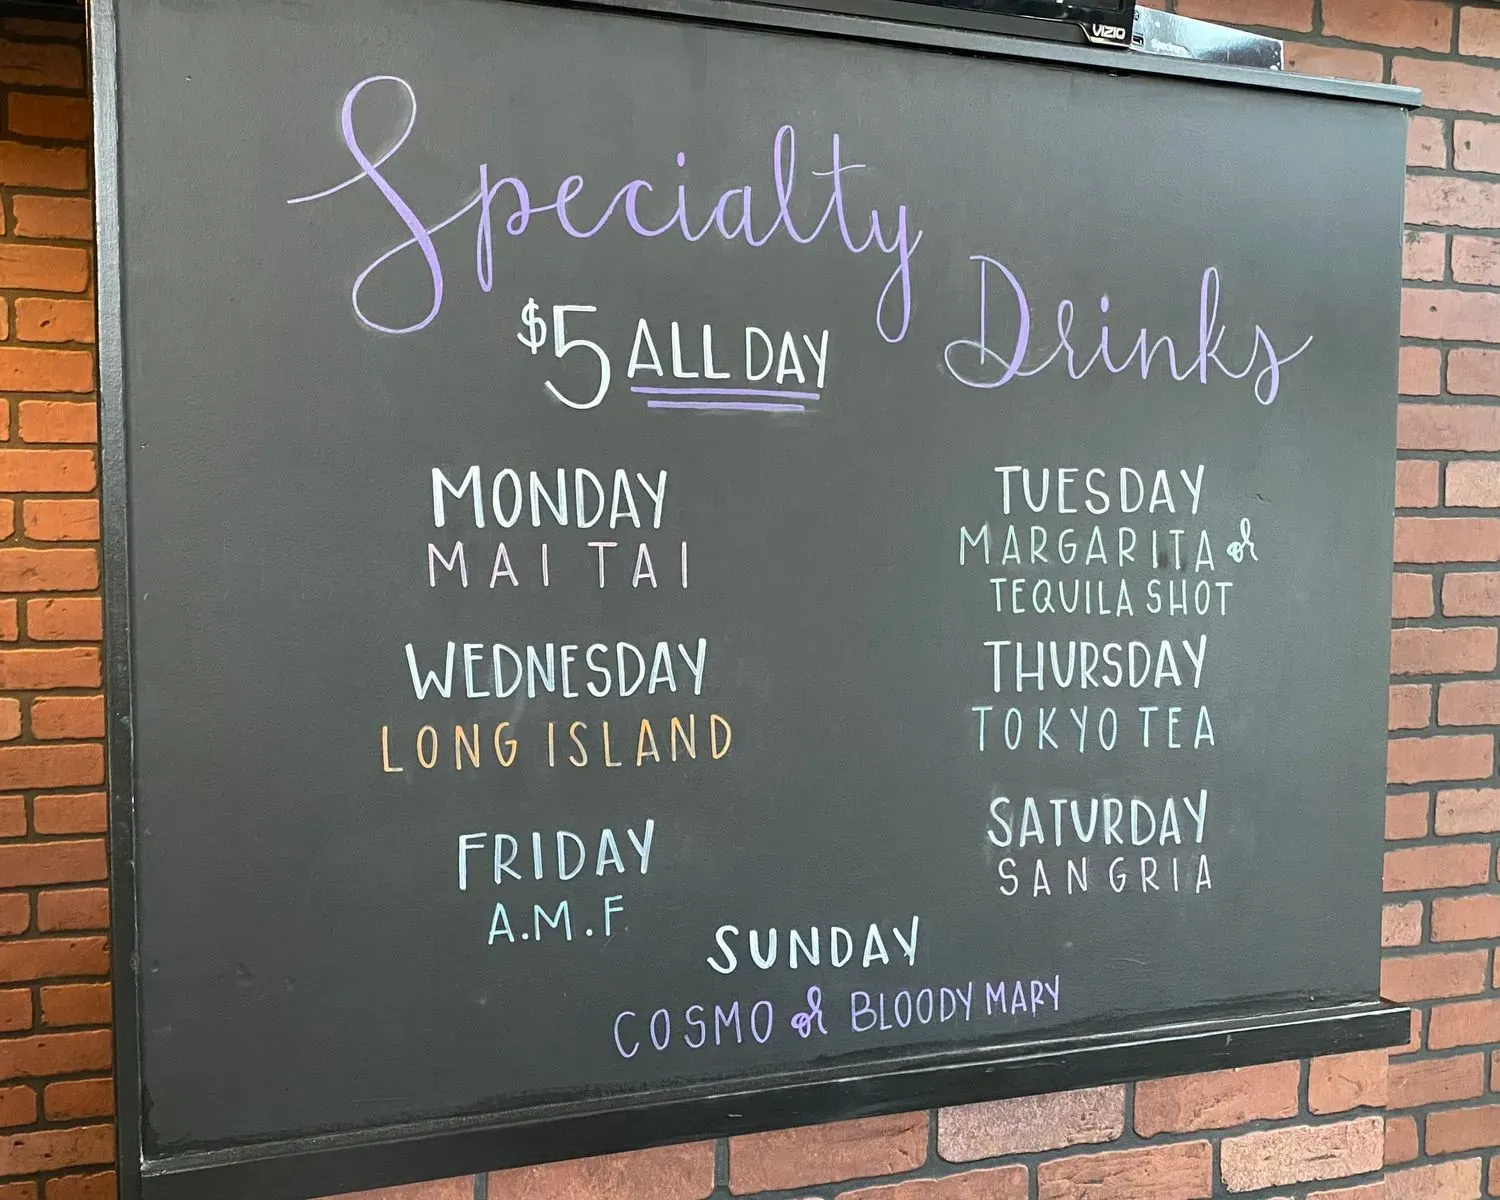 VIZIO
Specialty
Drinks
$5 ALL DAY
MONDAY
MAI TAI
TUESDAY
MARGARITA or
TEQUILA SHOT
WEDNESDAY
LONG ISLAND
THURSDAY
TOKYO TEA
FRIDAY
A.M.F
SATURDAY
SANGRIA
SUNDAY
COSMO or BLOODY MARY